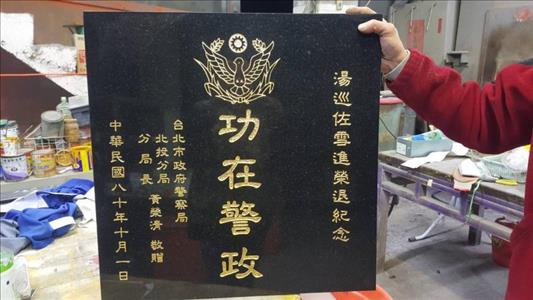 湯巡佐雪進榮退紀念
功在警政
台北市政府警察局
北投分局
分局長 黃榮清 敬贈
中華民國八十年十月一日